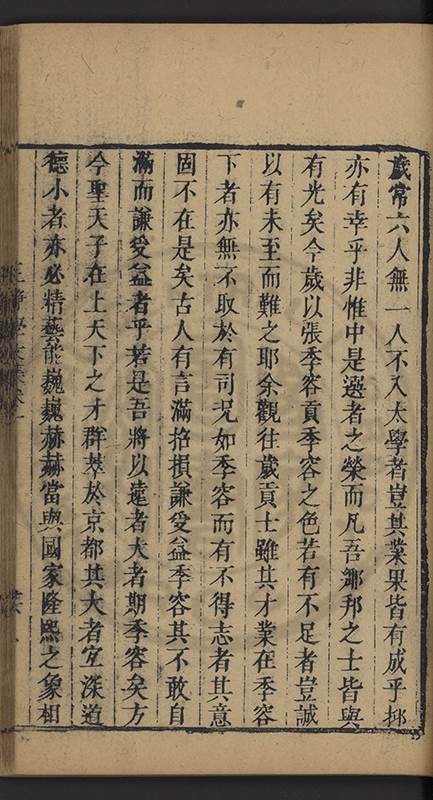 歲常六人無一人不入太學者豈其業果皆有成乎抑
亦有幸乎非惟中是選者之榮而凡吾鄉邦之士皆與
有光矣今歲以張季容貢季容之色若有不足者豈誠
以有未至而難之耶余觀往歲貢士雖其才業在季容
下者亦無不取於有司况如季容而有不得志者其意
固不在是矣古人有言滿招損謙受益季容其不敢自
滿而謙受益者乎若是吾將以遠者大者期季容矣方
今聖天子在上天下之才群萃於京都其大者宏深道
德小者亦必精藝能巍巍赫赫當與國家隆熙之象相